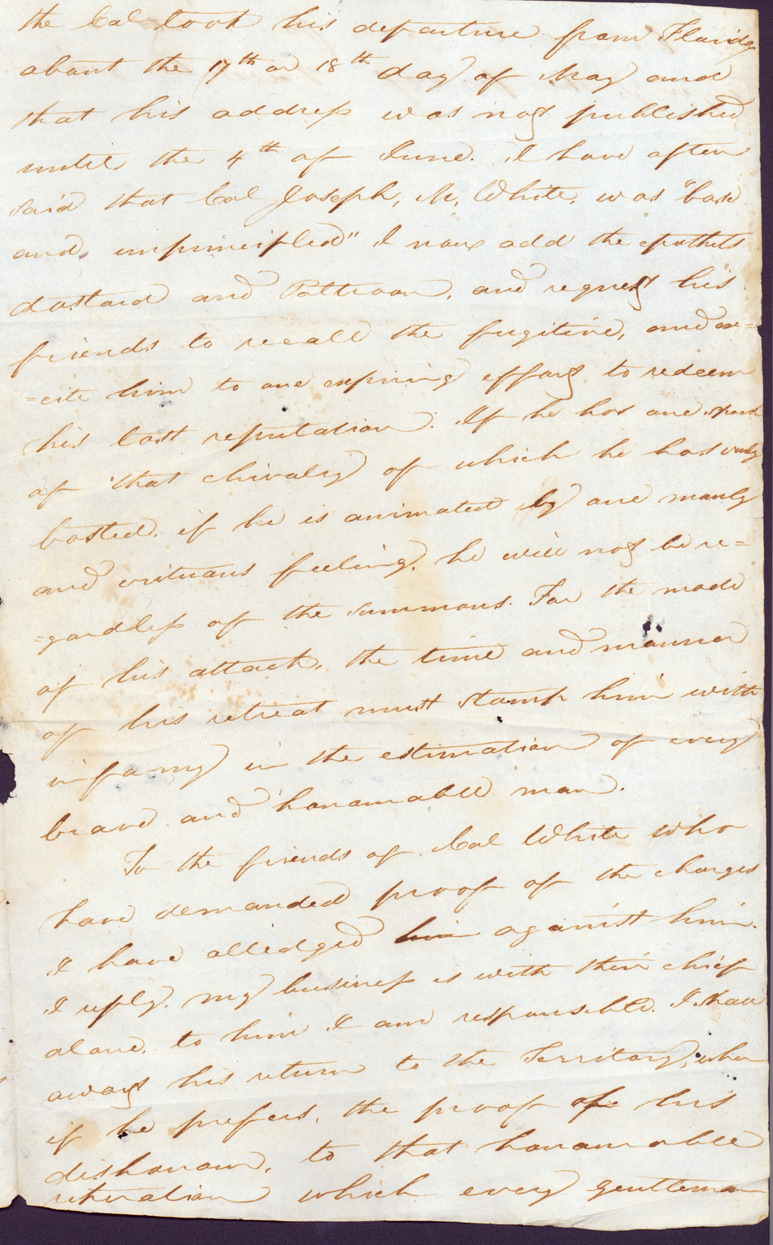 the Col took his departure from Florida
about the 17th or 18th day of May and
that his address was not published
until the 4th of June. I have often
said that Col Joseph, M, White, was "base
and unprincipled" I now add the epathets
dastard and Poltroon, and request his
friends to recall the fugitive, and ex=
=cite him to one expiring effort to redeem
his lost reputation. If he has one spark
of that chivalry of which he has vainly
bosted, if he is animated by one manly
and virtuous feeling, he will not be re=
=gardless of the summons. For the mode
of his attack, the time and manner
of his retreat must stamp him with
infamy in the estimation of every
brave and honourable man.
To the friends of Col White who
have demanded proof of the charges
I have alledged him against him.
I reply. my business is with their chief
alone. to him I am responsible. I shall
await his return to the Territory, when
if he prefers, the proof of his
dishonour, to that honourable
which every gentleman